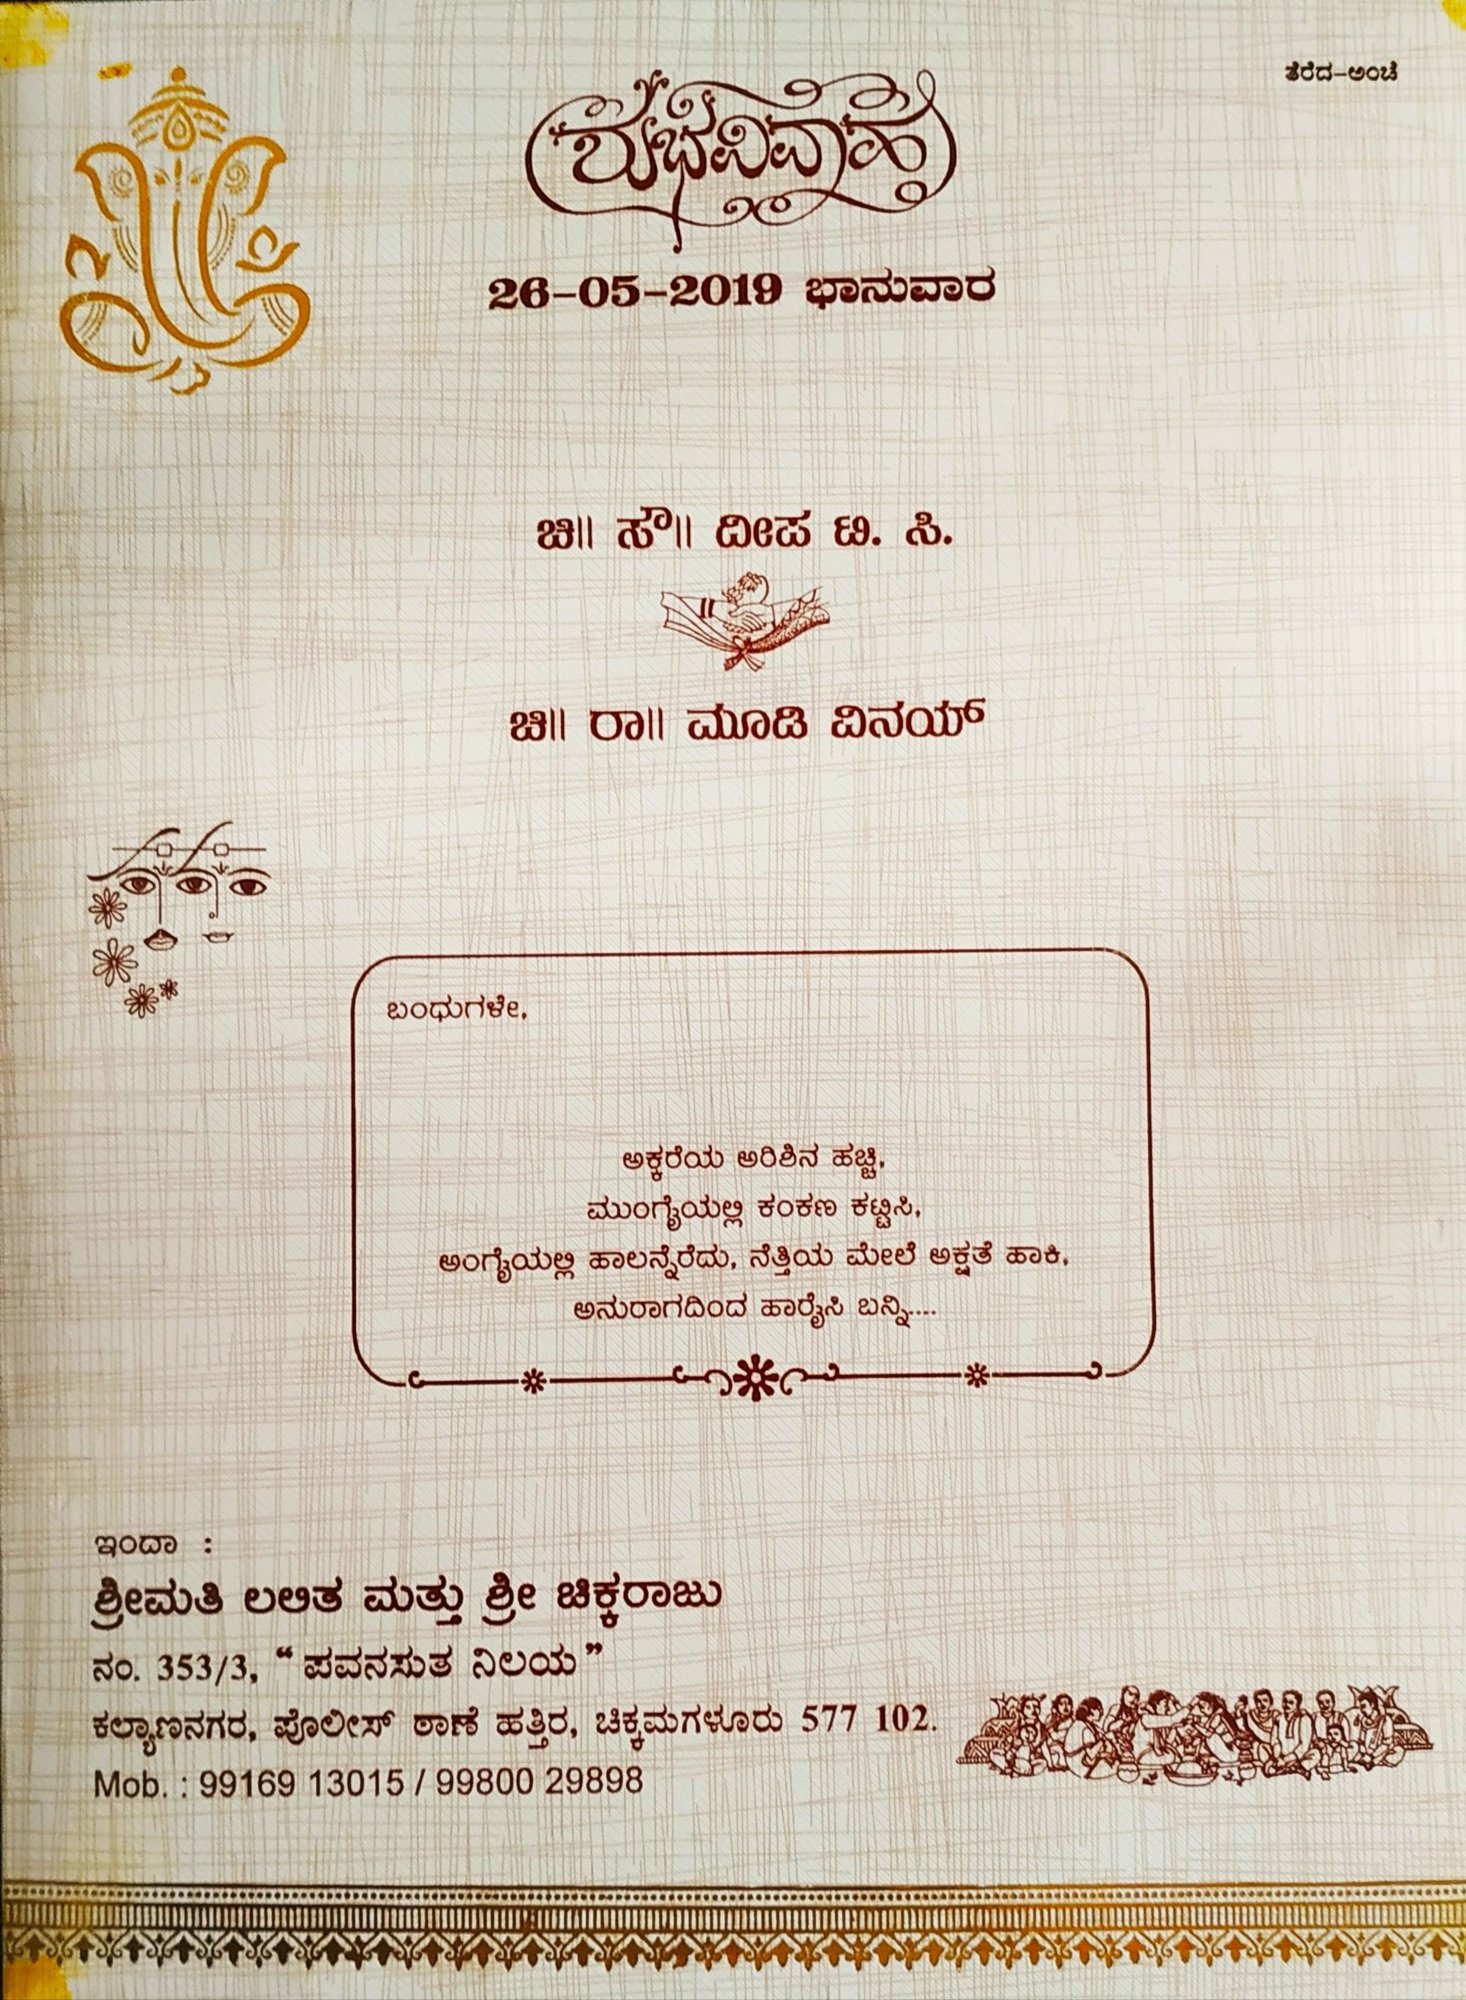 ತೆರೆದ-ಅಂಚೆ
ಶುಭವಿವಾಹ
26-05-2019 ಭಾನುವಾರ
ಚಿ|| ಸೌ|| ದೀಪ ಟಿ. ಸಿ.
ಚಿ|| ರಾ|| ಮೂಡಿ ವಿನಯ್
ಬಂಧುಗಳೇ,
ಅಕ್ಕರೆಯ ಅರಿಶಿನ ಹಚ್ಚಿ,
ಮುಂಗೈಯಲ್ಲಿ ಕಂಕಣ ಕಟ್ಟಿಸಿ,
ಅಂಗೈಯಲ್ಲಿ ಹಾಲನ್ನೆರೆದು, ನೆತ್ತಿಯ ಮೇಲೆ ಅಕ್ಷತೆ ಹಾಕಿ,
ಅನುರಾಗದಿಂದ ಹಾರೈಸಿ ಬನ್ನಿ....
ಇಂದಾ :
ಶ್ರೀಮತಿ ಲಲಿತ ಮತ್ತು ಶ್ರೀ ಚಿಕ್ಕರಾಜು
ನಂ. 353/3, “ಪವನಸುತ ನಿಲಯ”
ಕಲ್ಯಾಣನಗರ, ಪೊಲೀಸ್ ಠಾಣೆ ಹತ್ತಿರ, ಚಿಕ್ಕಮಗಳೂರು 577 102.
Mob. : 99169 13015 / 99800 29898